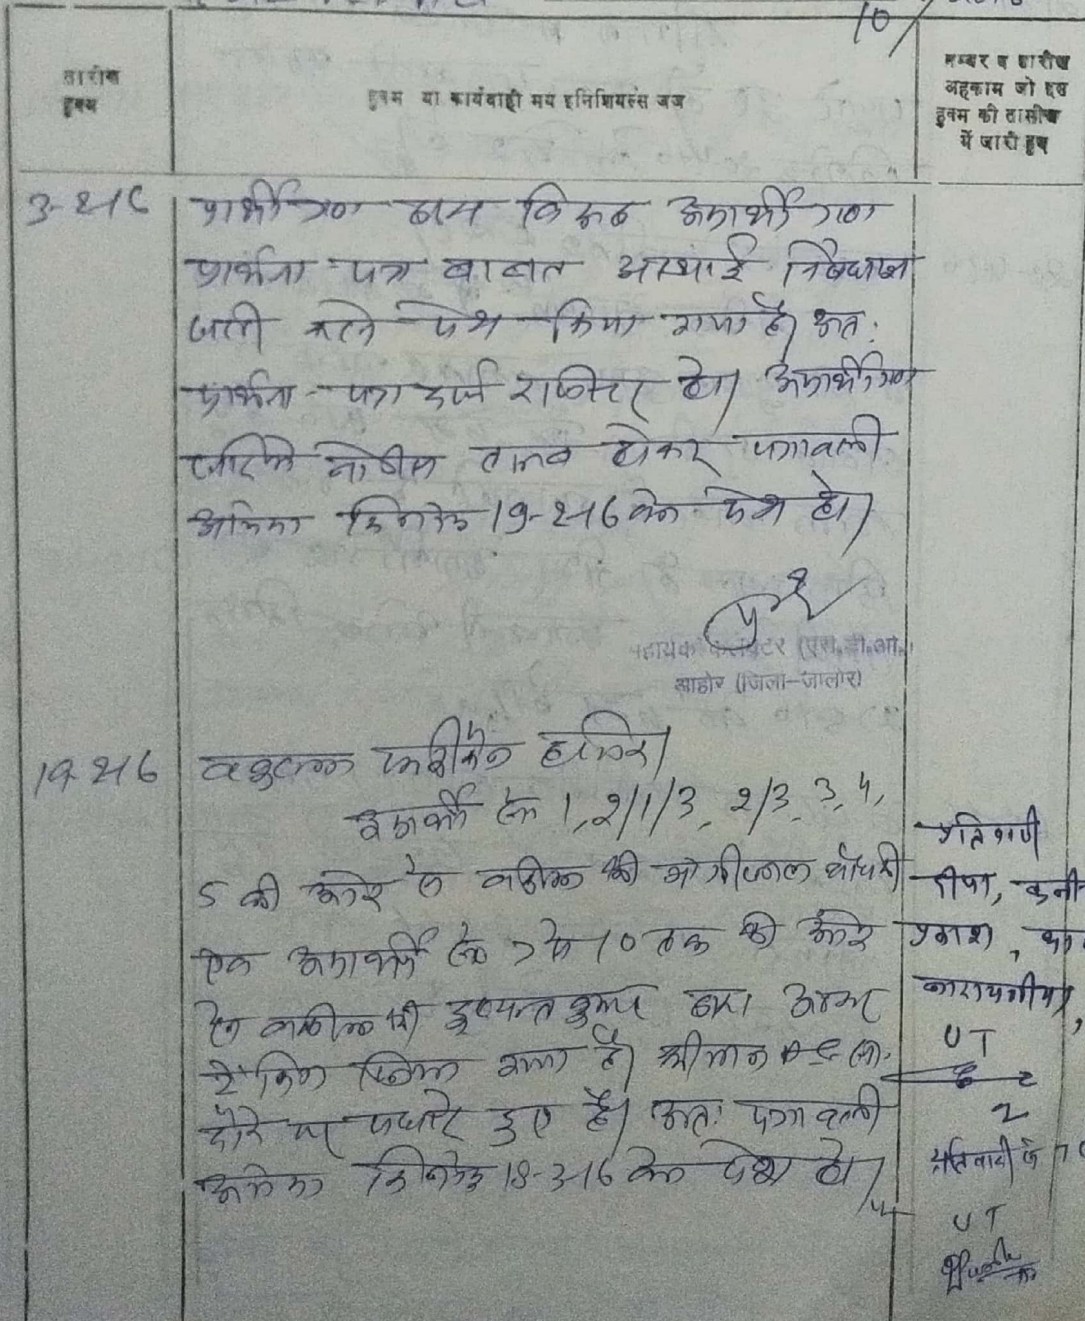 10/
तारीख
हुक्म
हुक्म या कार्यवाही मय इनिशियल्स जज
नम्बर व तारीख
अहकाम जो इस
हुक्म की तामील
में जारी हुए
3-2-16
प्रार्थीगण बनाम विरूद्ध अप्रार्थीगण
प्रार्थना पत्र बाबत अस्थाई निषेधाज्ञा
जारी करने पेश किया गया है। अतः
प्रार्थना-पत्र दर्ज रजिस्टर हो। अप्रार्थीगण
जरिये नोटिस तलब होकर पत्रावली
दिनांक 19-2-16 को पेश हो।
सहायक कलक्टर (एस.डी.ओ.)
आहोर (जिला-जालोर)
19-2-16
वकुलाय फरीकैन हाजिर।
अप्रार्थी सं. 1, 2/1/3, 2/3, 3, 4,
5 की ओर से वकील श्री चौधरी
एवं अप्रार्थी सं. 7 से 10 तक की ओर
से वकील श्री दुष्यन्त कुमार द्वारा
किया गया है। श्रीमान
दौरे पर पधारे हुए है। अतः पत्रावली
दिनांक 18-3-16 को पेश हो।
प्रतिवादी
प्रकाश,
UT
2
प्रतिवादी सं
UT